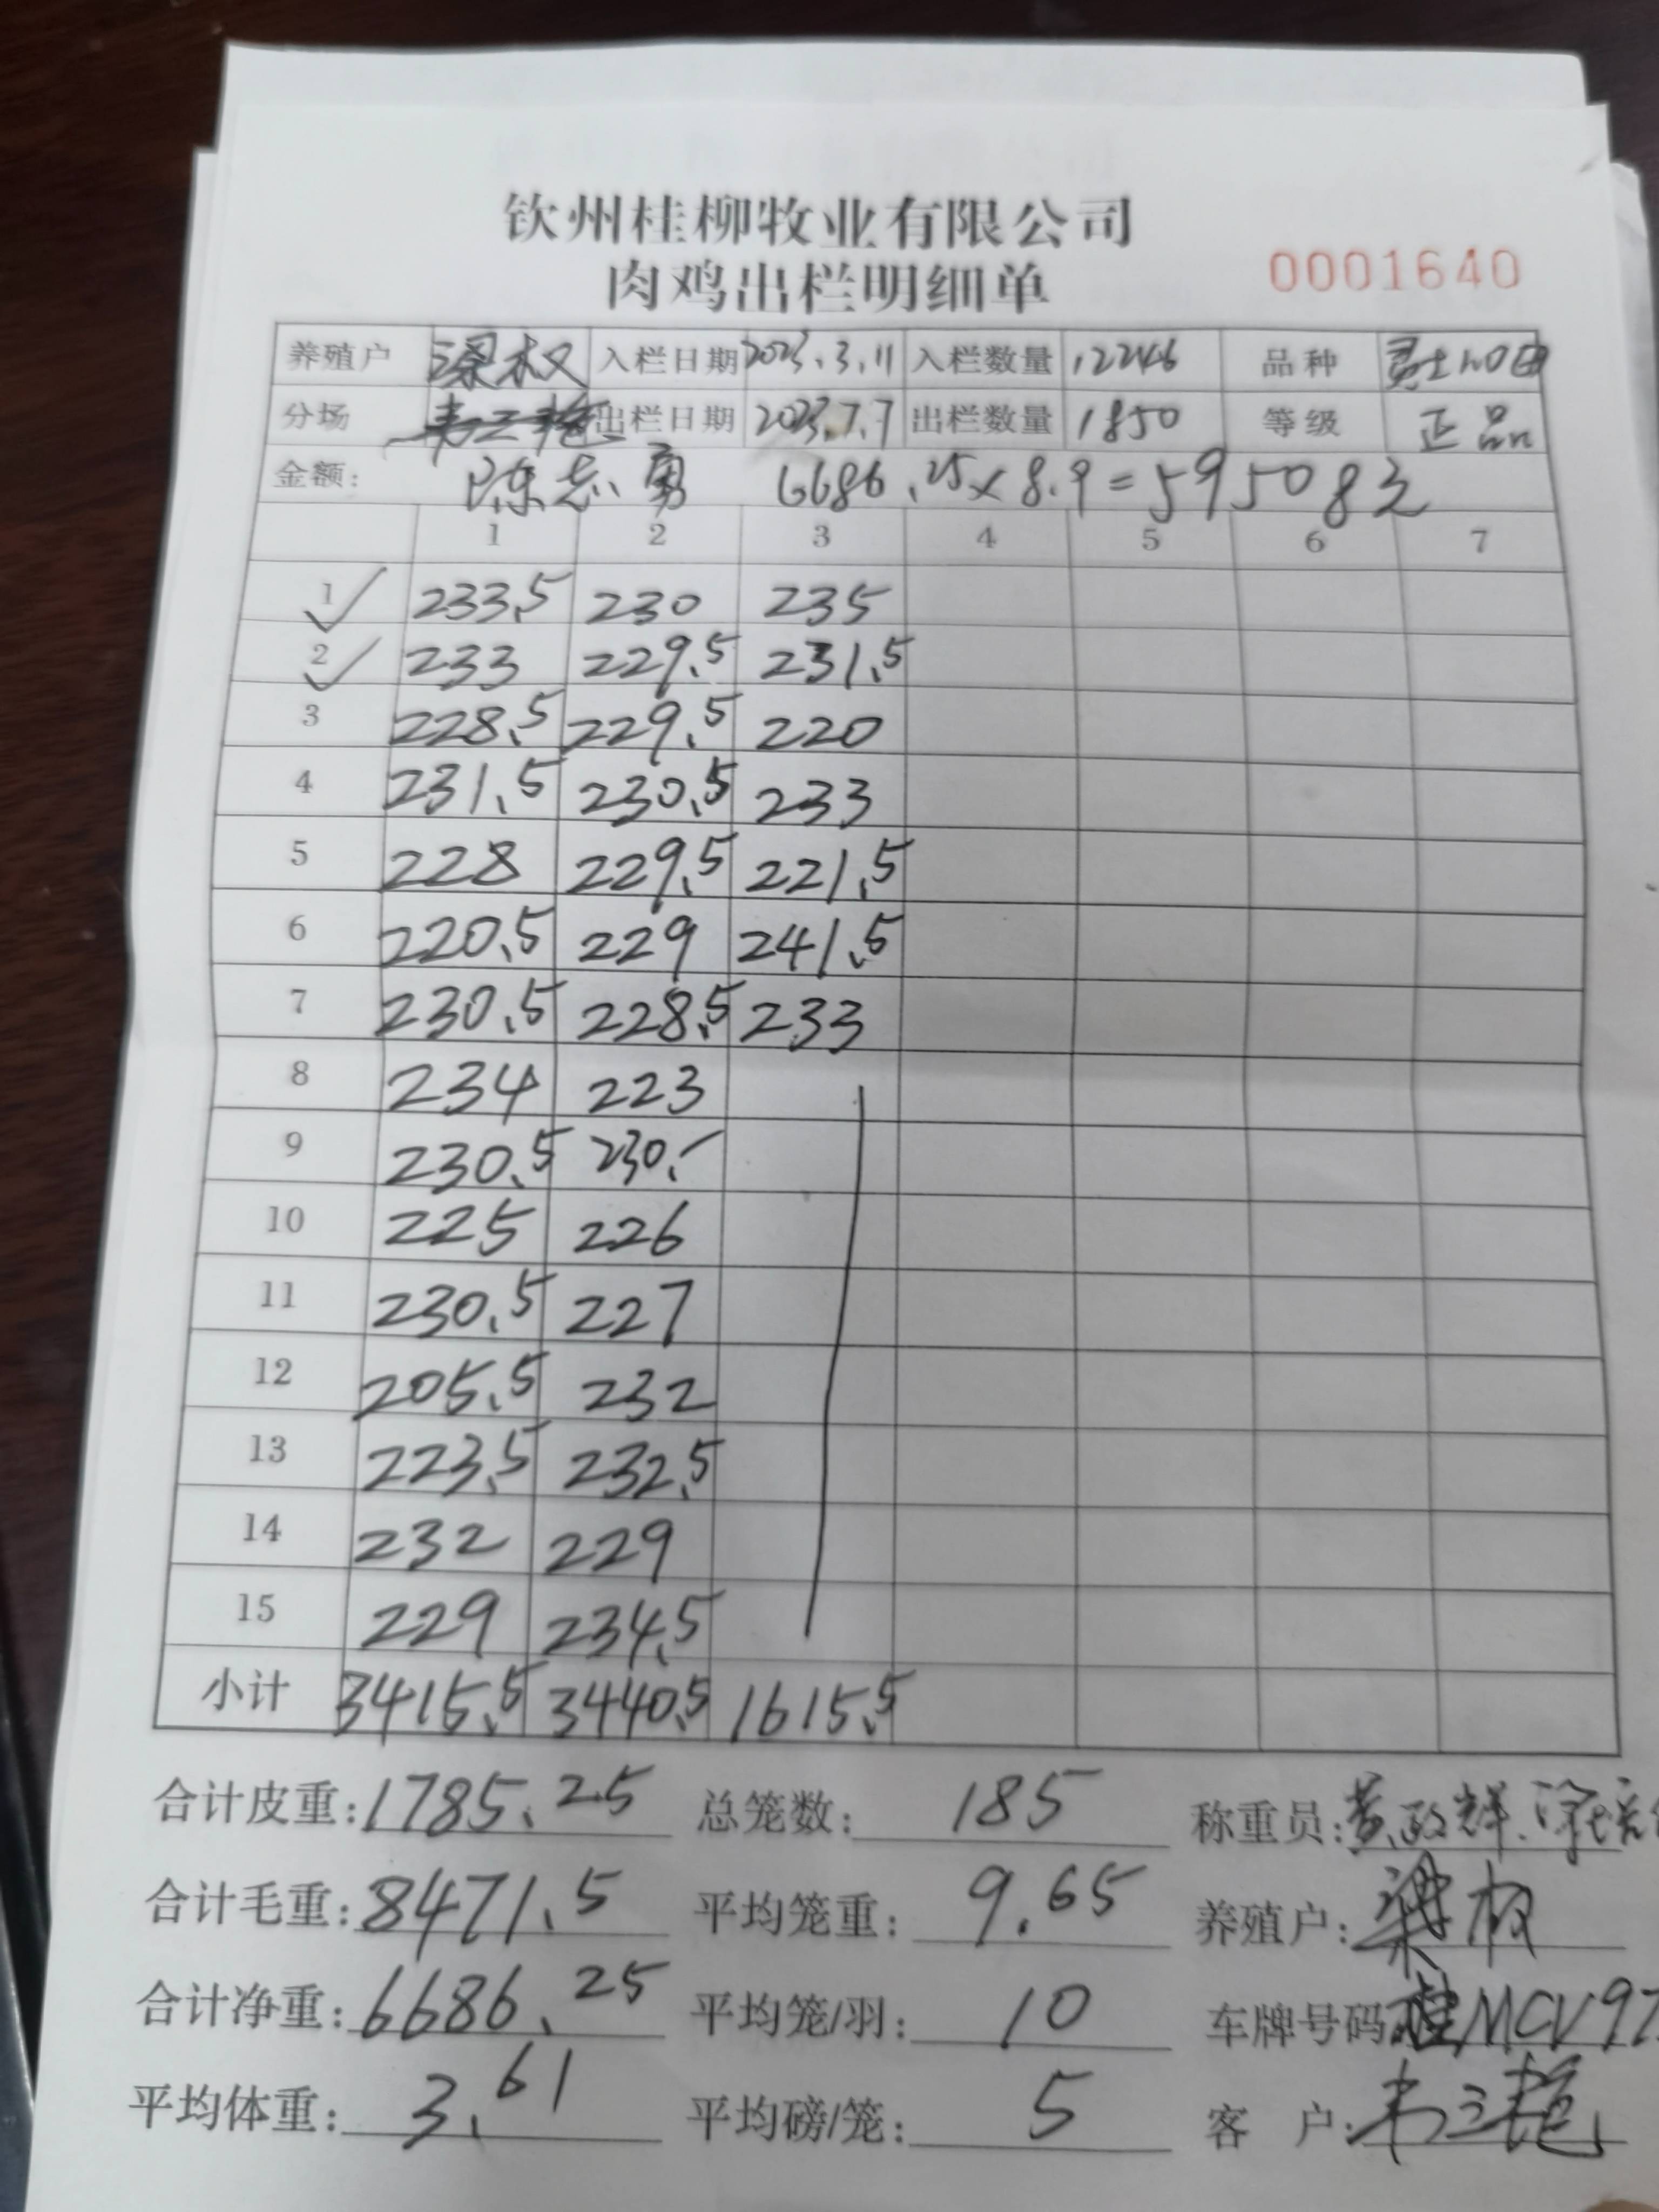 钦州桂柳牧业有限公司
肉鸡出栏明细单
0001640
养殖户 梁权 入栏日期 2023.3.11 入栏数量 12246 品种
分场 出栏日期 2023.7.7 出栏数量 1850 等级 正品
金额: 陈志勇 6686.25×8.9=59508元
1 2 3 4 5 6 7
1 233.5 230 235
2 233 229.5 231.5
3 228.5 229.5 220
4 231.5 230.5 233
5 228 229.5 221.5
6 220.5 229 241.5
7 230.5 228.5 233
8 234 223
9 230.5 230.
10 225 226
11 230.5 227
12 205.5 232
13 223.5 232.5
14 232 229
15 229 234.5
小计 3415.5 3440.5 1615.5
合计皮重: 1785.25 总笼数: 185 称重员: 黄政辉.
合计毛重: 8471.5 平均笼重: 9.65 养殖户: 梁权
合计净重: 6686.25 平均笼/羽: 10 车牌号码 桂MCV97
平均体重: 3.61 平均磅/笼: 5 客 户: 韦三艳